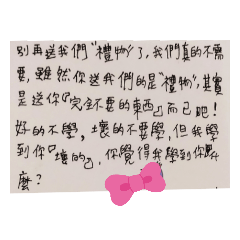 別再送我們"禮物"了,我們真的不需
要,雖然你送我們的是"禮物",其實
是送你『完全不要的東西』而已吧!
好的不學,壞的不要學,但我學
到你『壞的』,你覺得我學到你什
麼?